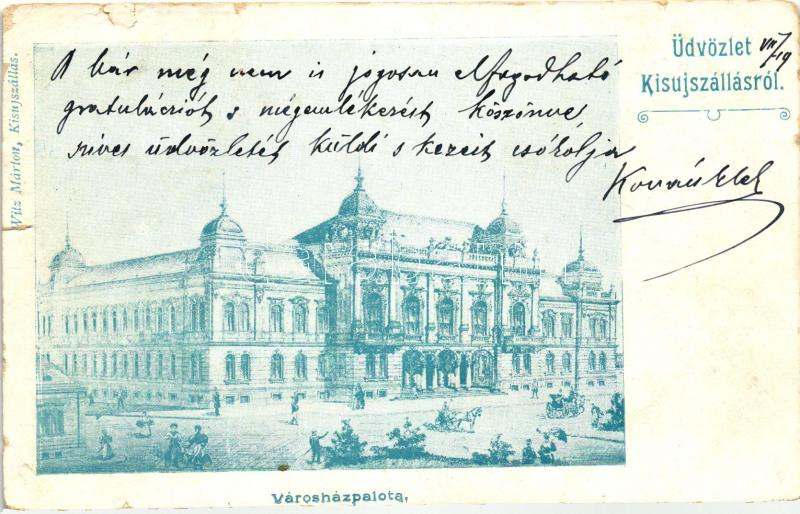 Üdvözlet
Kisujszállásról.
VII/19
A bár még nem is jogosan elfogadható
gratulációt s mégemlékezést köszönve
szives üdvözletét küldi s kezeit csókolja
Vitz Márton, Kisujszállás.
Városházpalota.